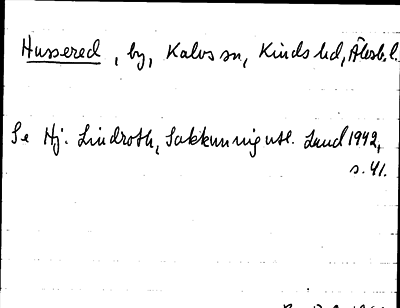 Hussered, by, Kalvs sn, Kinds hd, Älvsb. l.
Se Hj. Lindroth, Sakkunnig utl. Lund 1942,
s. 41.